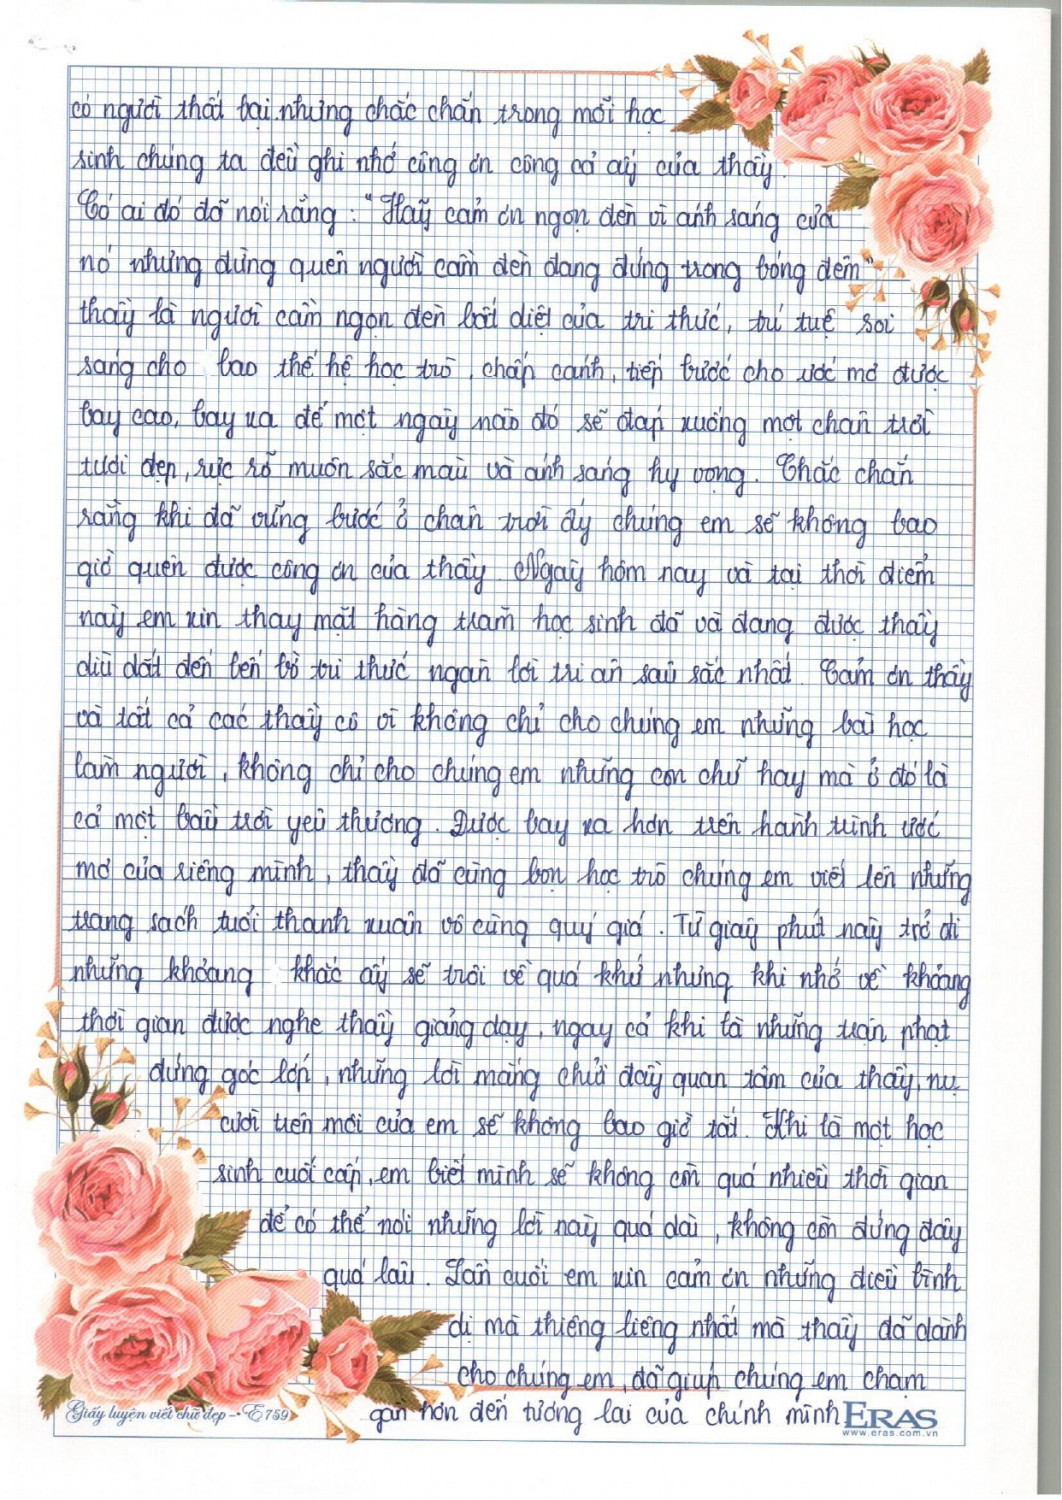 có người thất bại nhưng chắc chắn trong mỗi học
sinh chúng ta đều ghi nhớ công ơn công cả ấy của thầy.
Có ai đó đã nói rằng : "Hãy cảm ơn ngọn đèn vì ánh sáng của
nó nhưng đừng quên người cầm đèn đang đứng trong bóng đêm"
thầy là người cầm ngọn đèn bất diệt của tri thức, trí tuệ soi
sáng cho bao thế hệ học trò, chấp cánh, tiếp bước cho ước mơ được
bay cao, bay xa để một ngày nào đó sẽ đáp xuống một chân trời
tươi đẹp, rực rỡ muôn sắc màu và ánh sáng hy vọng. Chắc chắn
rằng khi đã vững bước ở chân trời ấy chúng em sẽ không bao
giờ quên được công ơn của thầy. Ngày hôm nay và tại thời điểm
này em xin thay mặt hàng trăm học sinh đã và đang được thầy
dìu dắt đến bến bờ tri thức ngàn lời tri ân sâu sắc nhất. Cảm ơn thầy
và tất cả các thầy cô vì không chỉ cho chúng em những bài học
làm người, không chỉ cho chúng em những con chữ hay mà ở đó là
cả một bầu trời yêu thương. Được bay xa hơn trên hành trình ước
mơ của riêng mình, thầy đã cùng bọn học trò chúng em viết lên những
trang sách tuổi thanh xuân vô cùng quý giá. Từ giây phút này trở đi
những khoảng khắc ấy sẽ trôi về quá khứ nhưng khi nhớ về khoảng
thời gian được nghe thầy giảng dạy, ngay cả khi là những trận phạt
đứng góc lớp, những lời mắng chửi đầy quan tâm của thầy, nụ
cười trên môi của em sẽ không bao giờ tắt. Khi là một học
sinh cuối cấp, em biết mình sẽ không còn quá nhiều thời gian
để có thể nói những lời này quá dài, không còn đứng đây
quá lâu. Lần cuối em xin cảm ơn những điều bình
dị mà thiêng liêng nhất mà thầy đã dành
cho chúng em, đã giúp chúng em chạm
gần hơn đến tương lai của chính mình
Giấy luyện viết chữ đẹp - E759
ERAS
www.eras.com.vn